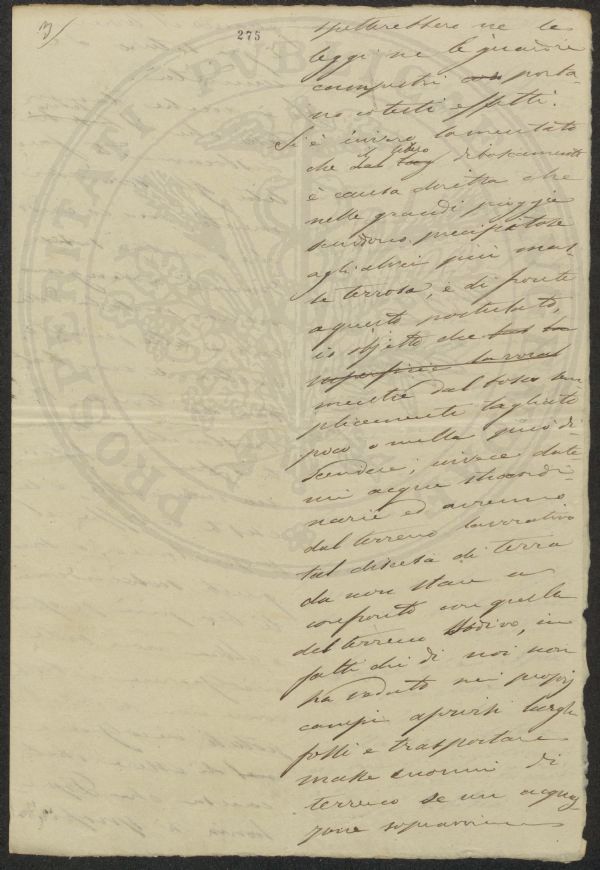 3/
275
spettessero ne le
leggi ne le guardie
campestri porta-
no cotesti effetti.
Si è invero lamentato
che il libero diboscamento
è causa diretta che
nelle grandi pioggie
scendono precipitose
agli alvei più mas-
se terrosa, e di fronte
a questo postulato,
io objetto che
mentre dal bosco sem-
plicemente tagliato
poco o nulla può di-
scendere; invece date-
mi acque straordi-
narie ed avremo
dal terreno lavorativo
tal discesa di terra
da non stare a
confronto con quella
del terreno sodivo, in-
fatti chi di noi non
ha veduto nei proprj
campi aprirsi larghi
fossi e trasportare
masse enormi di
terreno se un acquaz-
zone sopravviene
PROSPERITATI PUBLICAE